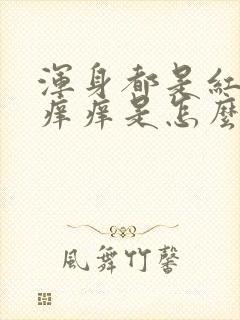 渾身都是紅
癢癢是怎麼
風舞竹馨